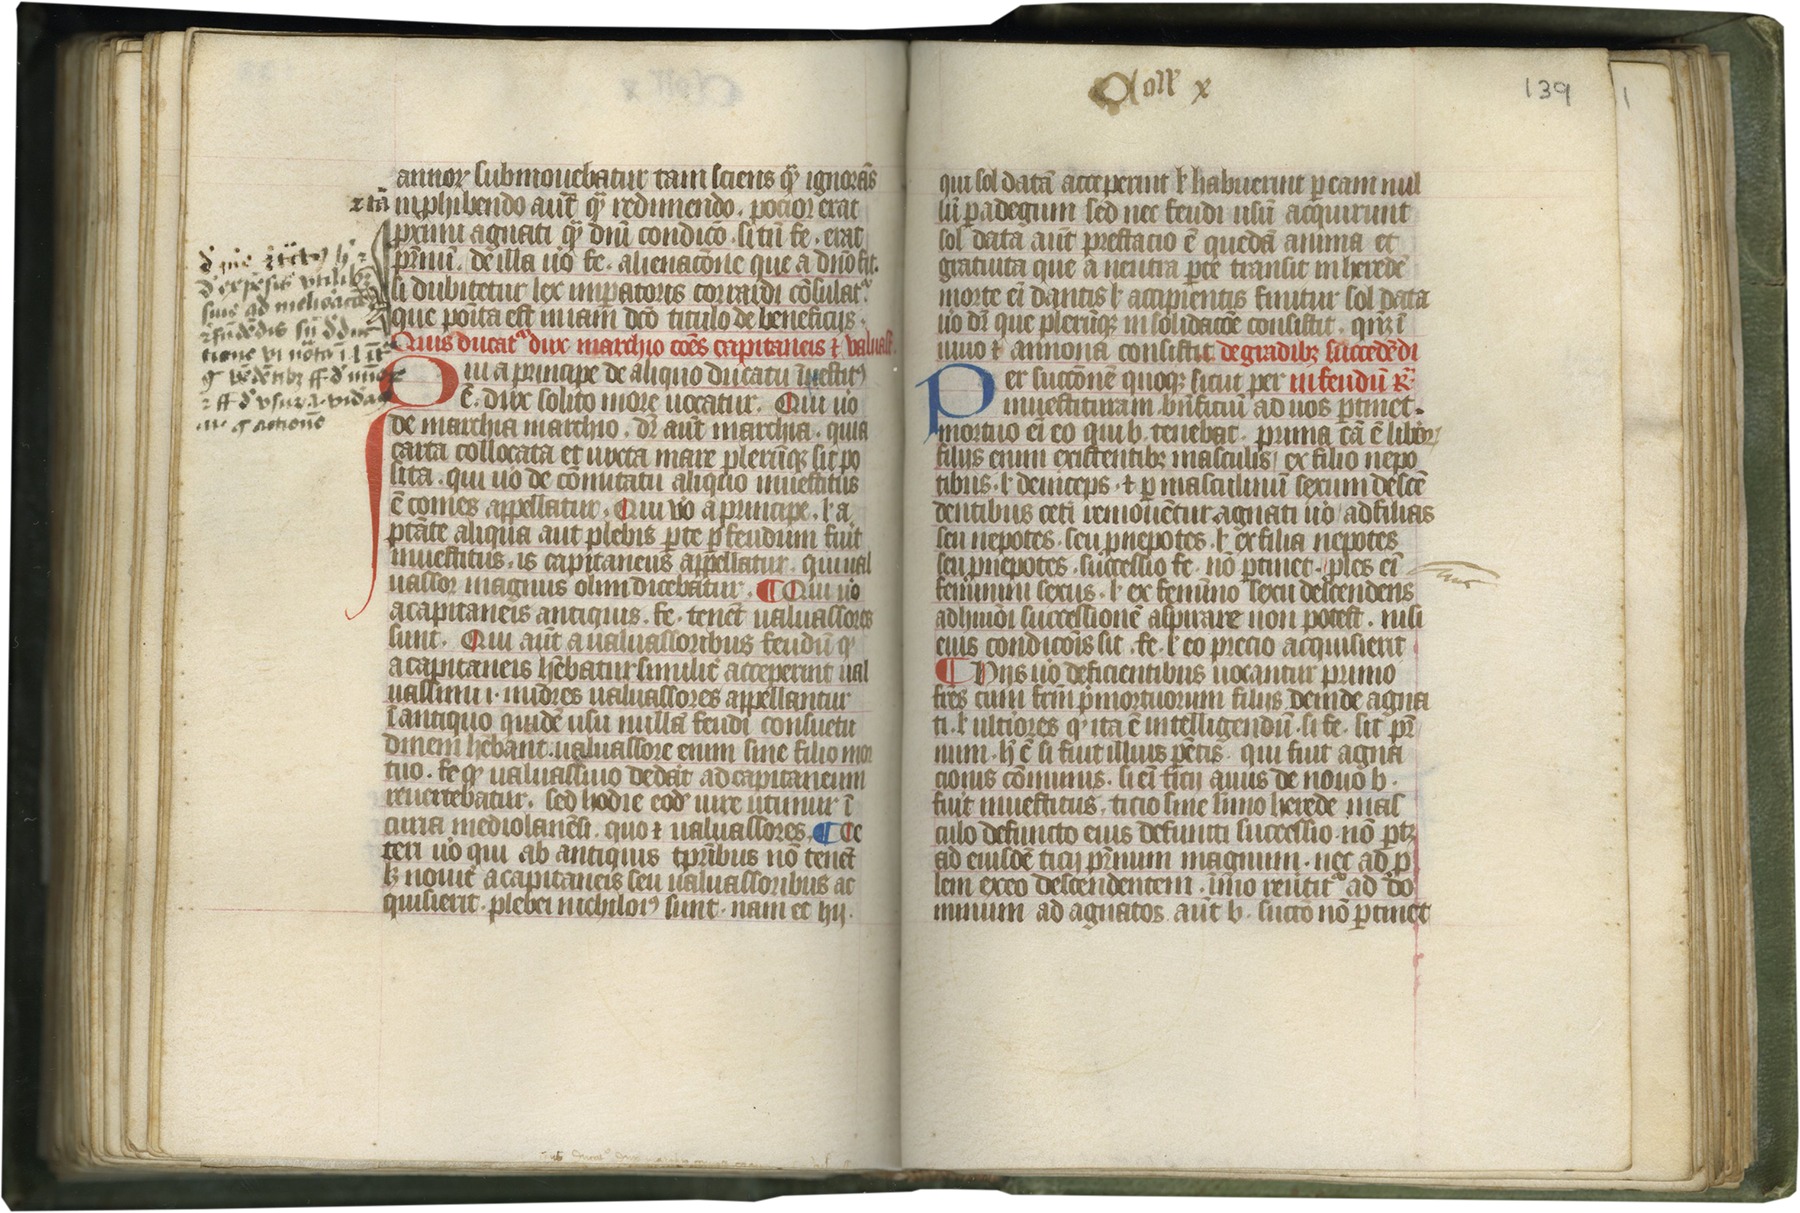 annoꝝ submouebatur tam sciens qͣ ignorās
in ꝓhibendo aut̄ qͣ redimendo · pocior erat
ꝓximi agnati qͣ dn̄i condicō · si tn̄ fe · erat
pr̄nū · de illa uo fe · alienacōne que a dn̄o fit ·
si dubitetur lex imꝑatoris corraldi cōsulatͬ
que po͛ita est in iam dc̄o titulo de beneficijs ·
Quis ducatͬ dux marchio com̄s capitaneis ⁊ valuass̄
Qui a principe de aliquo ducatu īuestitꝰ
ē · dux solito more uocatur · Qui uo
de marchia marchio · dr̄ aut̄ marchia · quia
carta collocata et iuxta mare plerūqꝫ sit po
sita · qui uo de comitatu aliquo inuestitus
ē comes appellatur · Qui vo a principe · ł a
ptāte aliqua aut plebis ꝑte ꝑ feudum fuit
inuestitus · is capitaneus appellatur · qui ual
uassor magnus olim dicebatur · ¶ Qui uo
a capitaneis antiquis · fe · tenēt ualuassores
sunt · Qui aut̄ a ualuassoribus feudū qͩ
a capitaneis hēbatur similit̄ acceperint ual
uassini · i · mīores ualuassores appellantur
s̄ antiquo quidē usu nullā feudi consuetu
dinem hēbant · ualuassore enim sine filio mor
tuo · fe qͩ ualuassino dedāt ad capitaneum
reuertebatur · sed hodie eod̄ iure utimur ī
curia mediolanēsi · quo ⁊ ualuassores · ¶ Ce
teri uo qui ab antiquis tꝑribus nō tenēt
sꝫ nouit̄ a capitaneis seu ualuassoribus ac
quisierit · plebei nichiloīꝰ sunt · nam et hij ·
Coll x
139
qui sol datā acceperint ł habuerint ꝑ eam nul
lū ꝑadegium sed nec feudi usū acquirunt
sol data aut̄ prestacio ē quedā anima et
gratuita que a neutra ꝑte transit in herede
morte ei dantis ł accipientis finitur sol data
uo dr̄ que plerūqꝫ in solidacōe consistit · qn̄qꝫ ī
uino ⁊ annona consistit de gradibꝫ succedēdi
Per succōnē quoqꝫ sicut per in feudū R͞
inuestituram · bn̄ficiū ad nos ꝑtinet ·
mortuo ei eo qui b · tenebat · prima cā ē liboꝝ
filijs enim existentibꝫ masculis ex filio nepo
tibus · ł deinceps · ⁊ ꝑ masculinū sexum descē
dentibus cet̄i remouētur agnati uo ad filias
seu nepotes · seu ꝓnepotes · ł ex filia nepotes
seu ꝓnepotes · successio fe · nō ꝑtinet · ꝓles ei
feminini sexus · ł ex feminīo sexu descendens
ad hmōi successionē aspirare non potest · nisi
eius condicōis sit · fe · ł eo precio acquisierit
¶ Hijs uo deficientibus uocantur primo
fr̄es cum fr̄m p̄mortuorum filijs deinde agna
ti · ł ult̄iores qͩ ita ē intelligendū · si fe · sit pr̄
num · h̄ ē si fuit illius pētis · qui fuit agna
cionis cōmunis · si ei ticij auus de nouo b ·
fuit inuestitus · ticio sine simo herede mas
culo defuncto eius defuncti successio nō ꝑtꝫ
ad eiusdē ticij pr̄num magnum · nec ad ꝓ
lem ex eo descendentem · īmo reūtitͬ ad do
minum ad agnatos aut̄ b · succō nō ꝑtinet